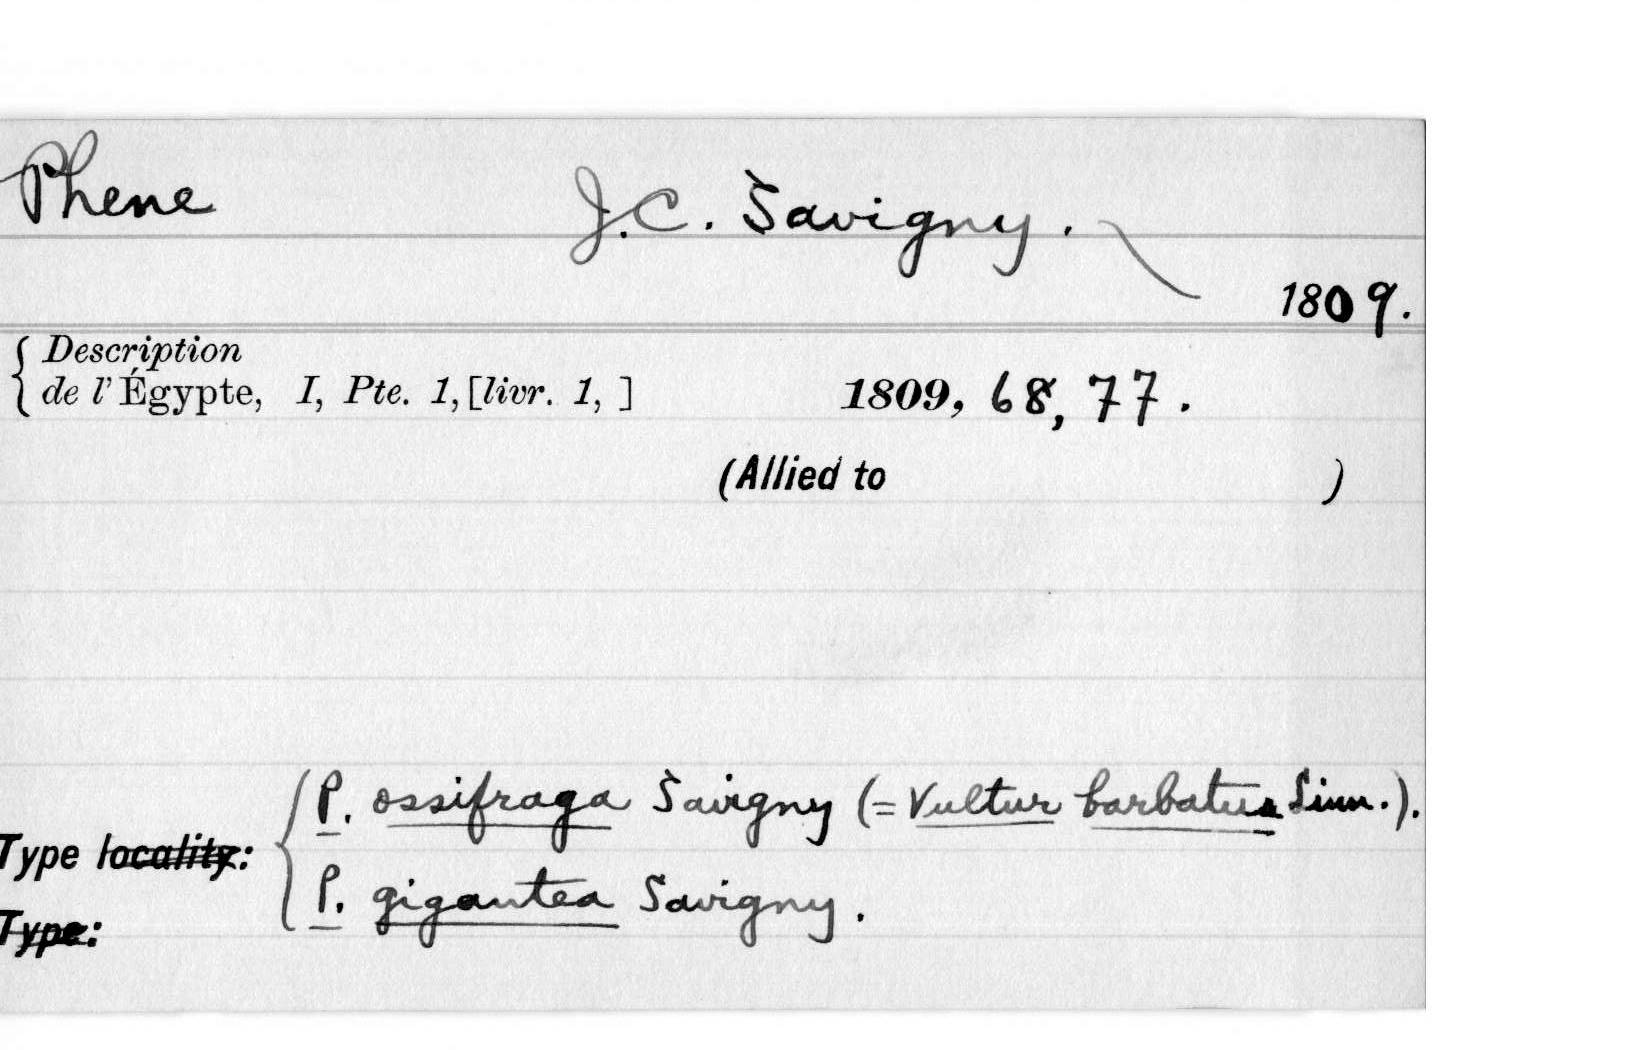 Phene J.C. Savigny.
1809.
Description
de l'Égypte, I, Pte. 1, [livr. 1, ] 1809, 68, 77.
(Allied to )
P. ossifraga Savigny (= Vultur barbatus Linn.).
Type locality:
P. gigantea Savigny.
Type: